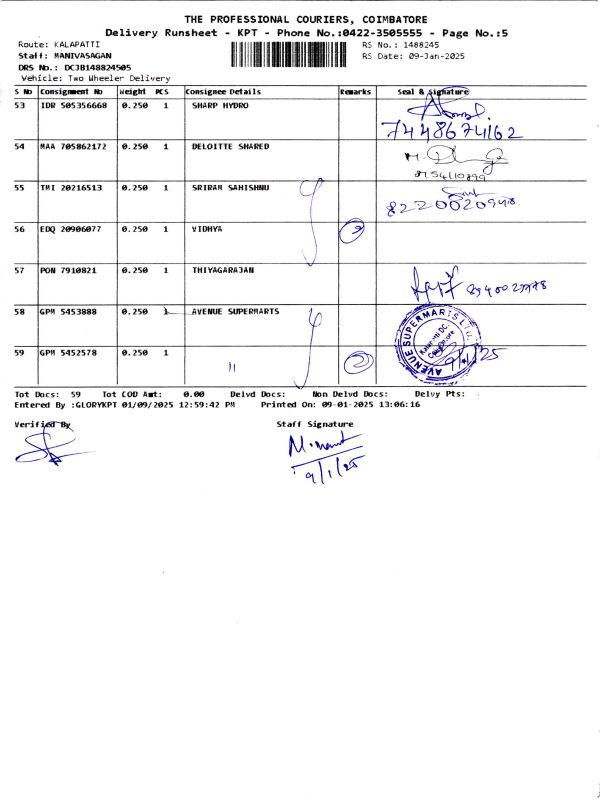 THE PROFESSIONAL COURIERS, COIMBATORE
Delivery Runsheet - KPT - Phone No.:0422-3505555 - Page No.:5
Route: KALAPATTI RS No.: 1488245
Staff: MANIVASAGAN RS Date: 09-Jan-2025
DRS No.: DCJB148824505
Vehicle: Two Wheeler Delivery
S No Consignment No Weight PCS Consignee Details Remarks Seal & Signature
53 IDR 505356668 0.250 1 SHARP HYDRO
7448674162
54 MAA 705862172 0.250 1 DELOITTE SHARED
55 TMI 20216513 0.250 1 SRIRAM SAHISHNU
56 EDQ 20906077 0.250 1 VIDHYA 2
57 PON 7910821 0.250 1 THIYAGARAJAN
58 GPM 5453888 0.250 1 AVENUE SUPERMARTS
AVENUE SUPERMARTS LTD.
9/1/25
59 GPM 5452578 0.250 1 11 2
Tot Docs: 59 Tot COD Amt: 0.00 Delvd Docs: Non Delvd Docs: Delvy Pts:
Entered By :GLORYKPT 01/09/2025 12:59:42 PM Printed On: 09-01-2025 13:06:16
Verified By Staff Signature
9/1/25